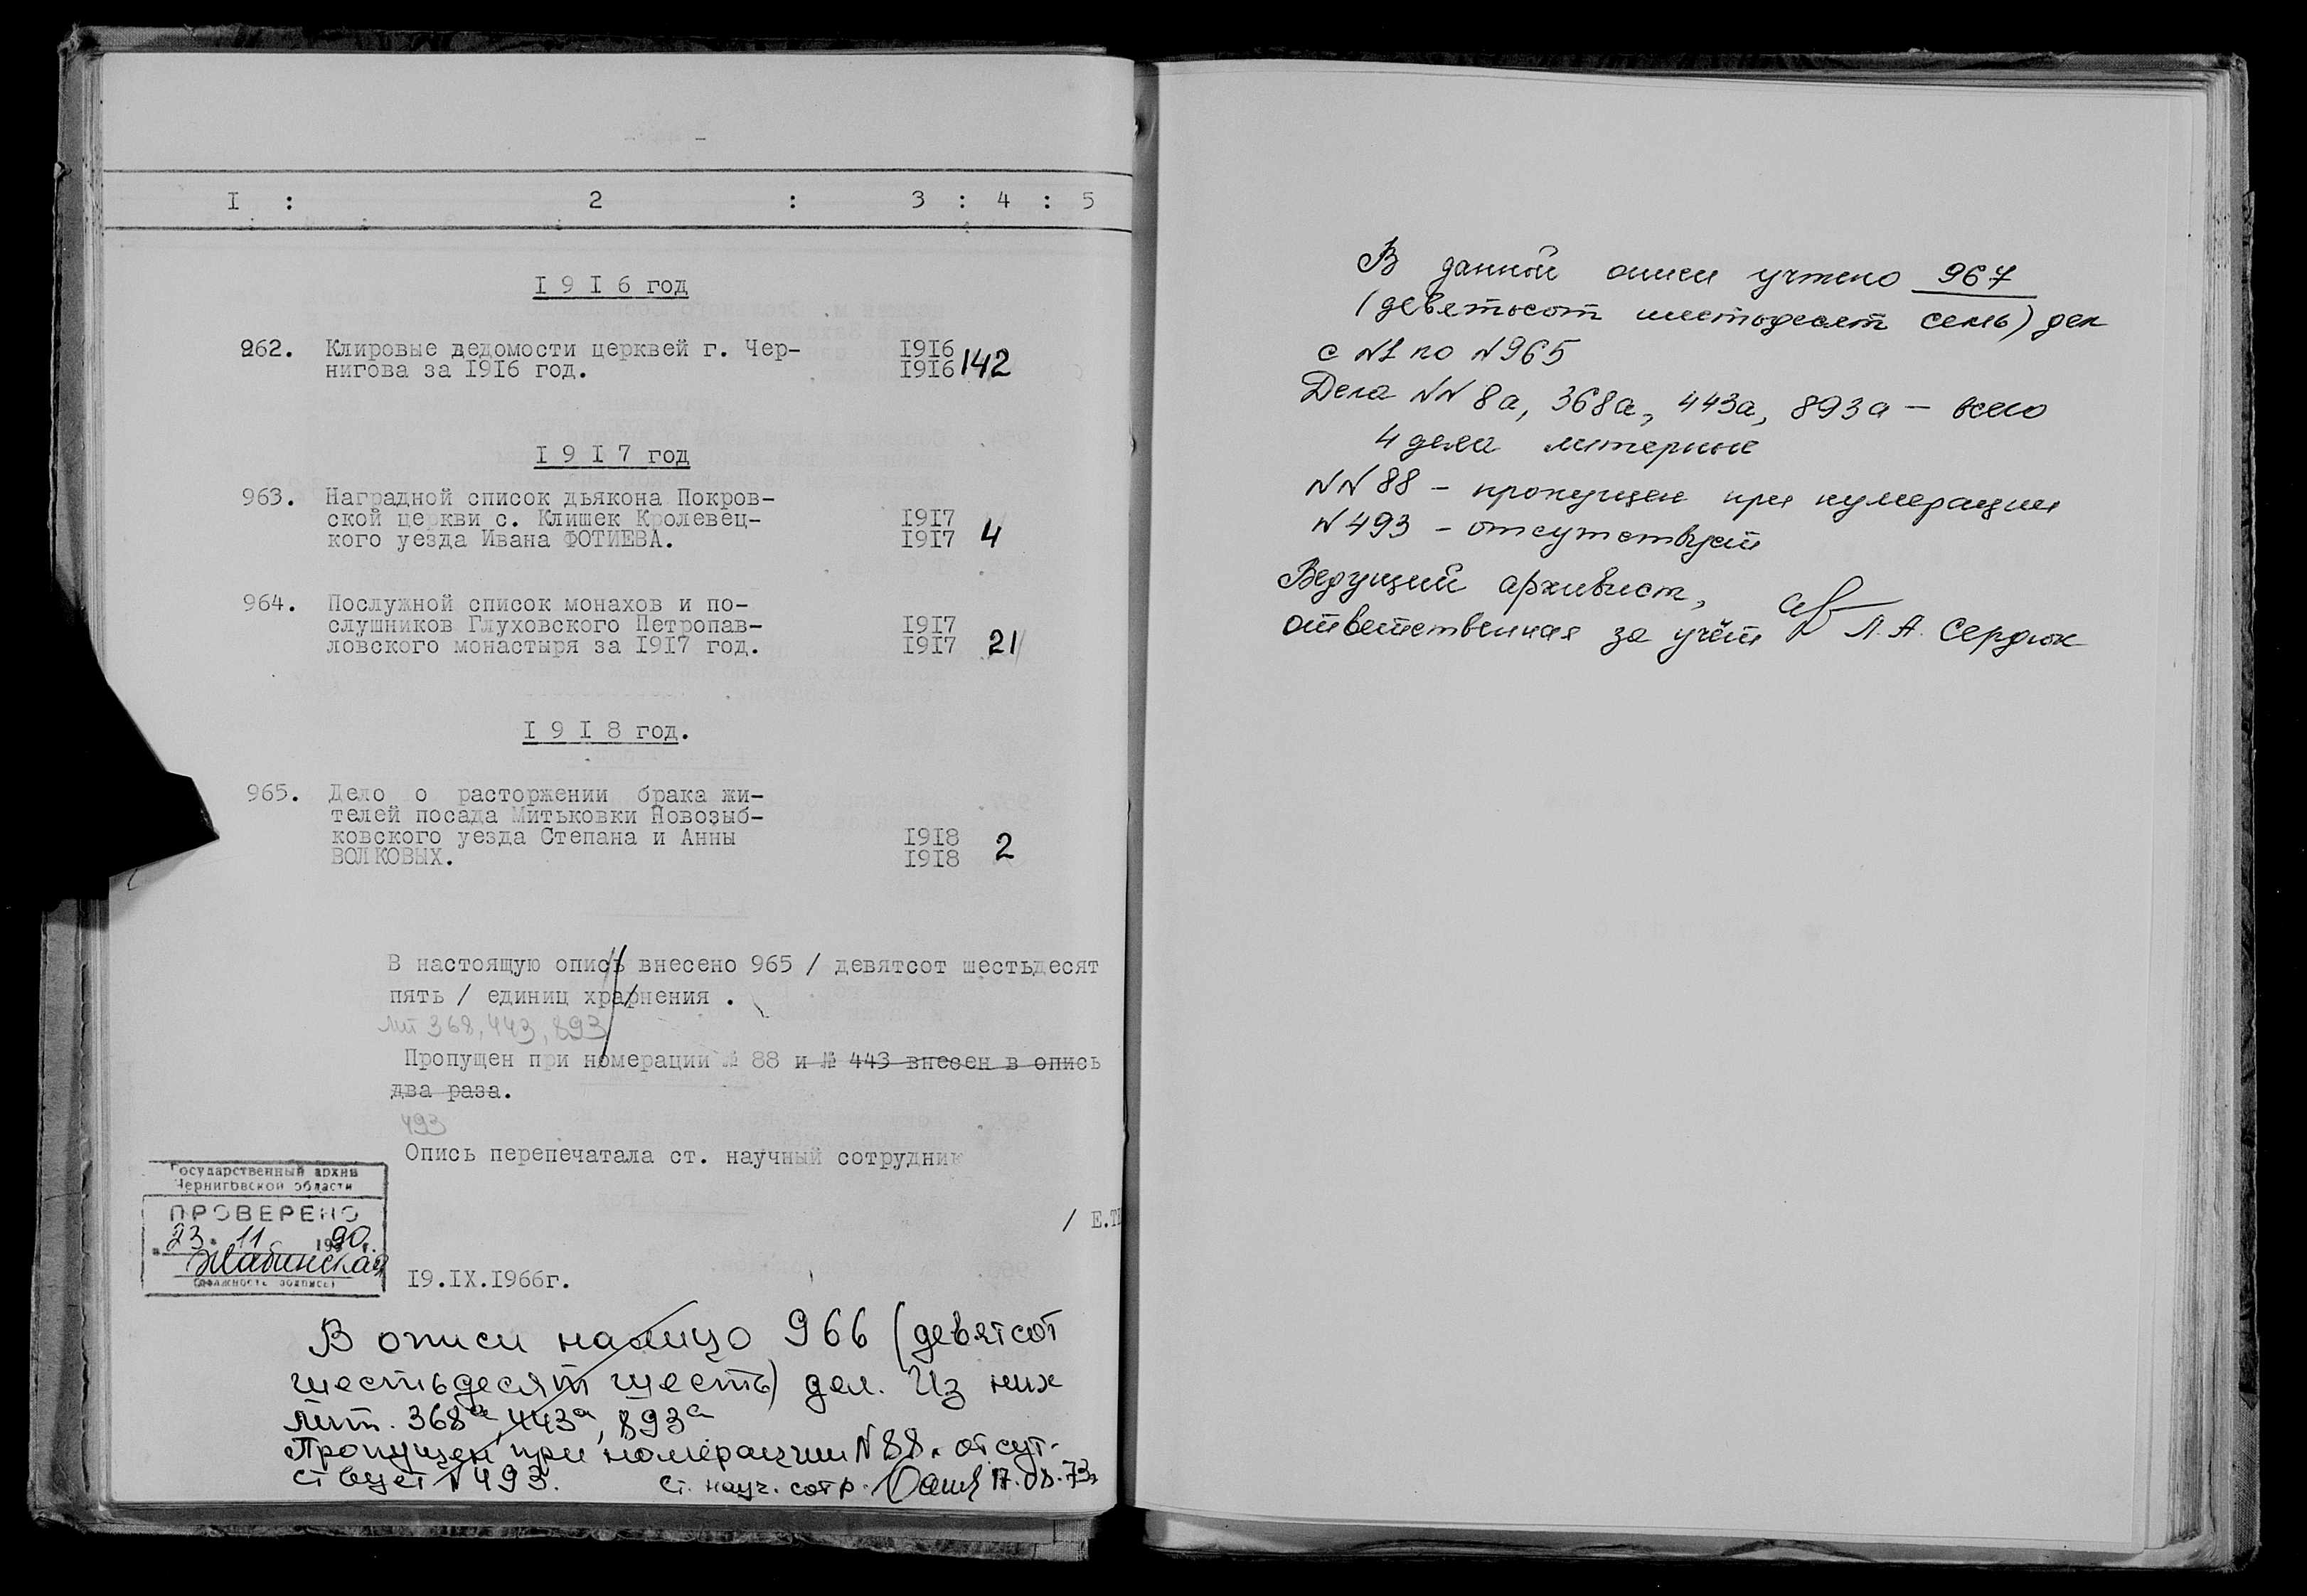 I : 2 : 3 : 4 : 5
I 9 I 6 год
962. Клировые дедомости церквей г. Чер- I9I6
нигова за I9I6 год. I9I6 142
I 9 I 7 год
963. Наградной список дьякона Покров-
ской церкви с. Клишек Кролевец- I9I7
кого уезда Ивана ФОТИЕВА. I9I7 4
964. Послужной список монахов и по-
слушников Глуховского Петропав- I9I7
ловского монастыря за I9I7 год. I9I7 21
I 9 I 8 год.
965. Дело о расторжении брака жи-
телей посада Митьковки Новозыб-
ковского уезда Степана и Анны I9I8
ВОЛКОВЫХ. I9I8 2
В настоящую опись внесено 965 / девятсот шестьдесят
пять / единиц хранения .
лит 368, 443, 893
Пропущен при номерации № 88 и № 443 внесен в опись
два раза.
493
Опись перепечатала ст. научный сотрудник
/ Е.
Государственный архив
Черниговской области
ПРОВЕРЕНО
"23" 11 1990 г.
Жабинская
(должность подпись)
I9.IX.I966г.
В описи налицо 966 (девятсот
шестьдесят шесть) дел. Из них
лит. 368а, 443а, 893а
Пропущен при номерации N 88, отсут-
ствует N 493.
Ст. науч. сотр. 17.08.73г
В данной описи учтено 967
(девятьсот шестьдесят семь) дел
с N1 по N965
Дела NN 8а, 368а, 443а, 893а – всего
4 дела литерные
NN 88 – пропущен при нумерации
N 493 – отсутствует
Ведущий архивист,
ответственная за учёт Л. А. Сердюк